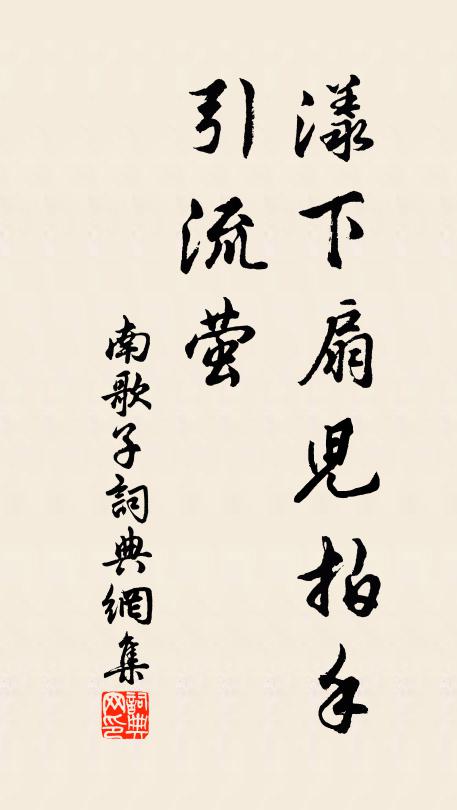 漾下扇兒拍手
引流萤
南歌子詞典網集
詞典网印